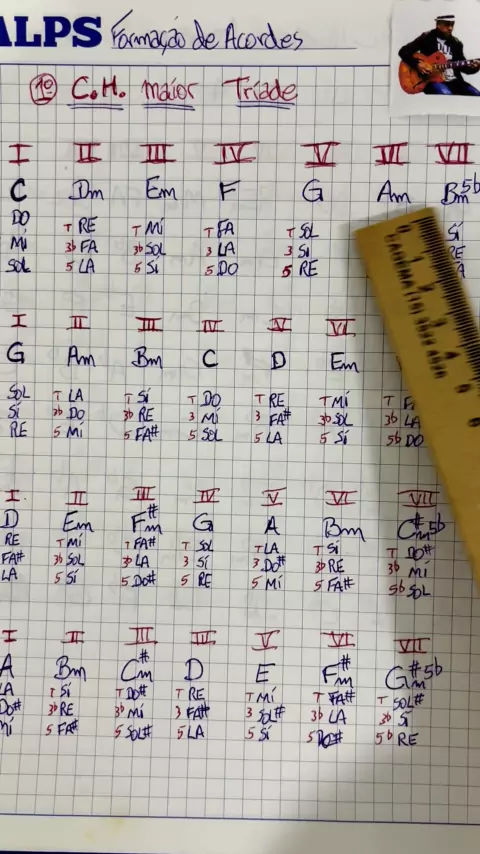 ALPS Formação de Acordes
1º C.H. maior Tríade
I II III IV V VI VII
C Dm Em F G Am Bm5b
DO T RE T MÍ T FA T SOL SÍ
MÍ 3b FA 3b SOL 3 LA 3 SÍ RE
SOL 5 LA 5 SÍ 5 DO 5 RE
I II III IV V VI
G Am Bm C D Em
SOL T LA T SÍ T DO T RE T MÍ T
SÍ 3b DO 3b RE 3 MÍ 3 FA# 3b SOL 3b LA
RE 5 MÍ 5 FA# 5 SOL 5 LA 5 SÍ 5b DO
I II III IV V VI VII
D Em F#m G A Bm C#m5b
RE T MÍ T FA# T SOL T LA T SÍ T DO#
FA# 3b SOL 3b LA 3 SÍ 3 DO# 3b RE 3b MÍ
LA 5 SÍ 5 DO# 5 RE 5 MÍ 5 FA# 5b SOL
I II III III V VI VII
A Bm C#m D E F#m G#m5b
LA T SÍ T DO# T RE T MÍ T FA# T SOL#
DO# 3b RE 3b MÍ 3 FA# 3 SOL# 3b LA 3b SÍ
MÍ 5 FA# 5 SOL# 5 LA 5 SÍ 5 DO# 5b RE